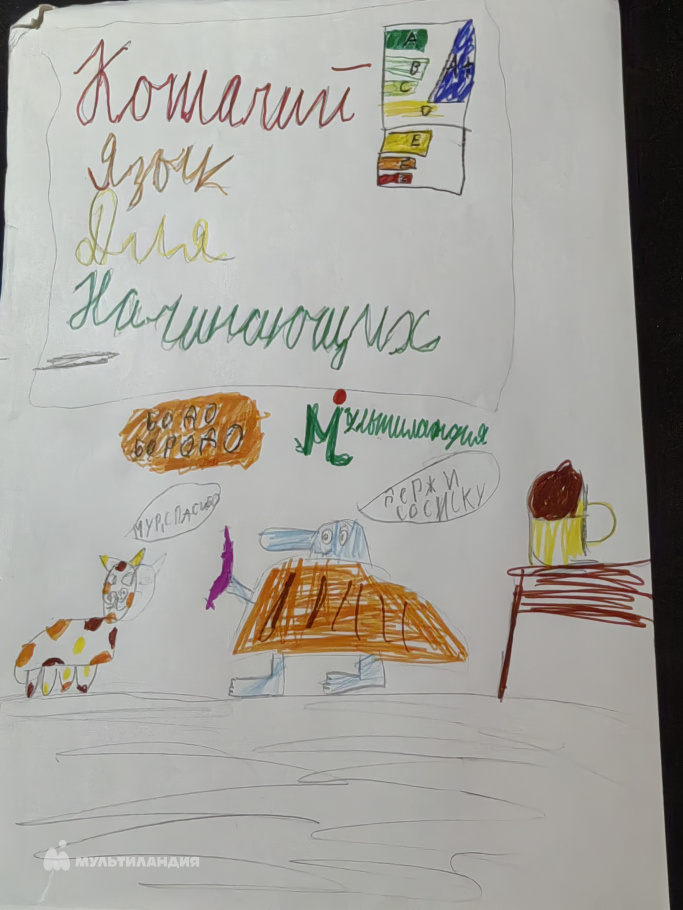 Кошачий
Язык
Для
Начинающих
A
B
C
D
A+
E
БОДО
БОРОДО
Мультиландия
МУР, СПАСИБО
ДЕРЖИ
СОСИСКУ
МУЛЬТИЛАНДИЯ